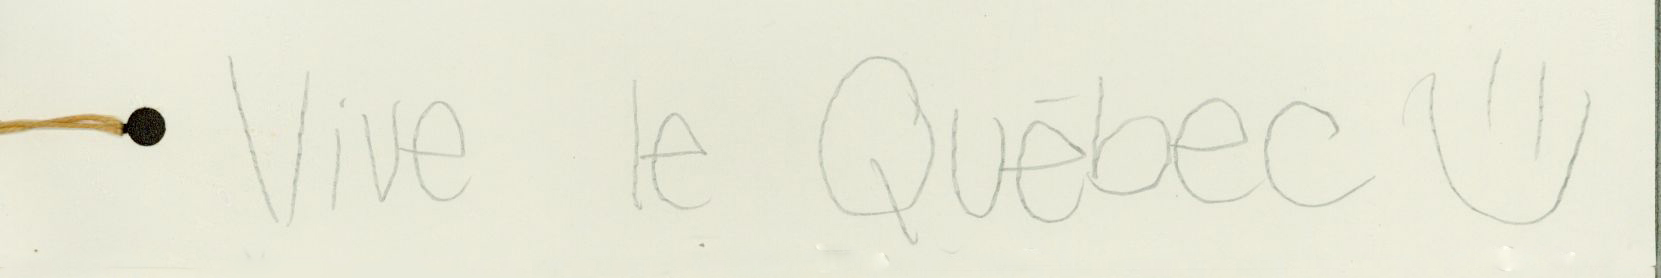 Vive le Québec